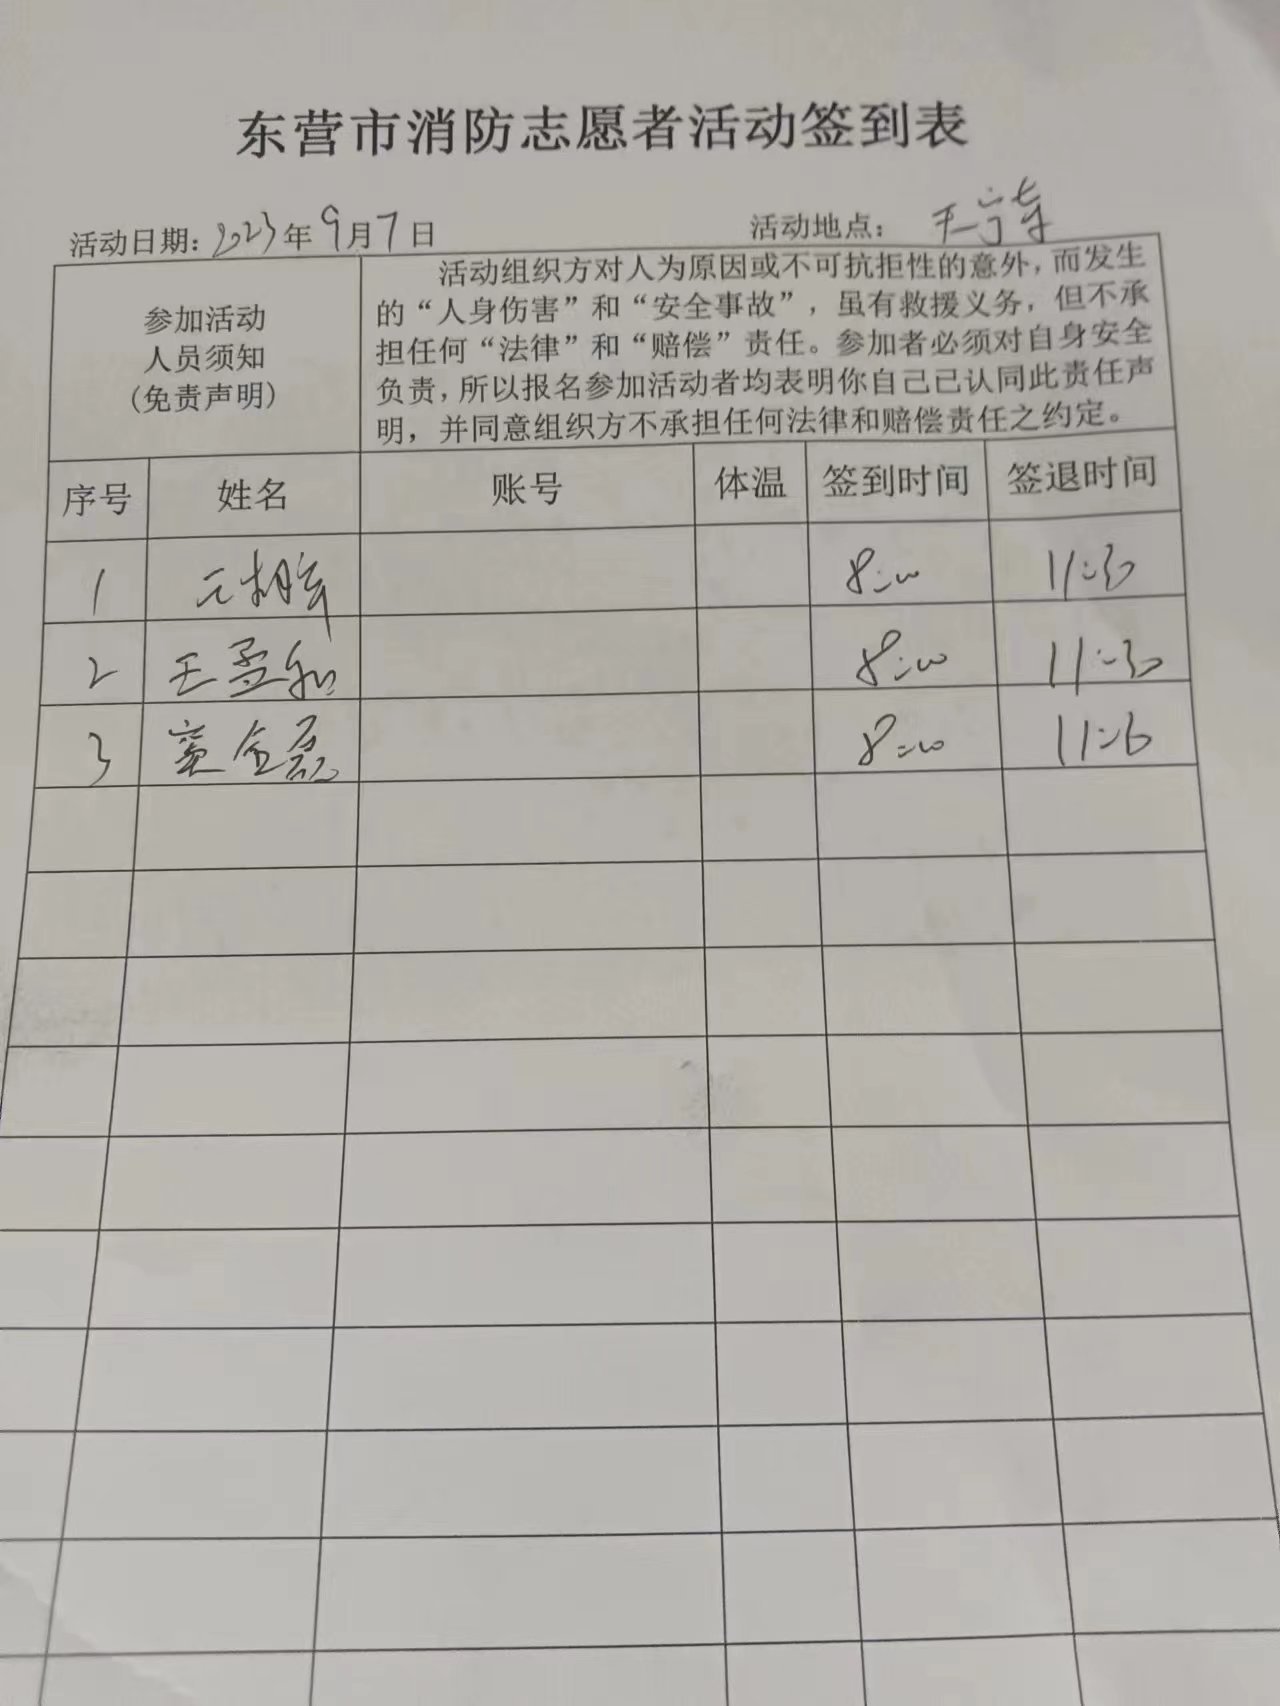 东营市消防志愿者活动签到表
活动日期：2023年9月7日 活动地点：天宁寺
参加活动
人员须知
(免责声明)
活动组织方对人为原因或不可抗拒性的意外，而发生
的“人身伤害”和“安全事故”，虽有救援义务，但不承
担任何“法律”和“赔偿”责任。参加者必须对自身安全
负责，所以报名参加活动者均表明你自己已认同此责任声
明，并同意组织方不承担任何法律和赔偿责任之约定。
序号 姓名 账号 体温 签到时间 签退时间
1 8:00 11:30
2 王孟和 8:00 11:30
3 窦金磊 8:00